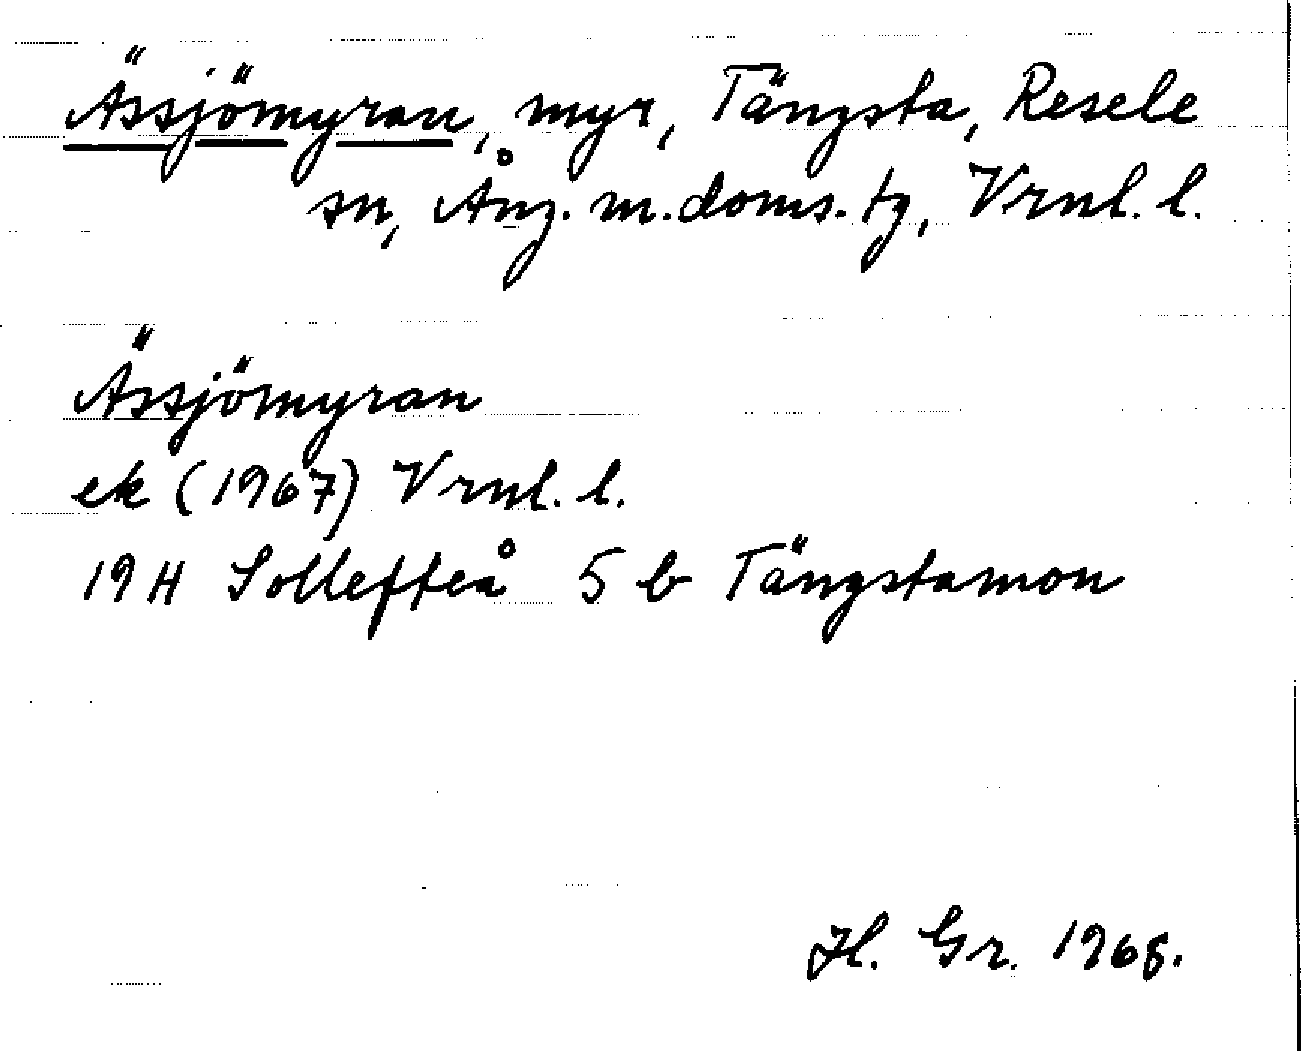 Ässjömyran, myr, Tängsta, Resele
sn, Ång. m. doms. tg, Vrnl. l.
Ässjömyran
ek (1967) Vrnl. l.
19 H Sollefteå 5 b Tängstamon
H. Gr. 1968.